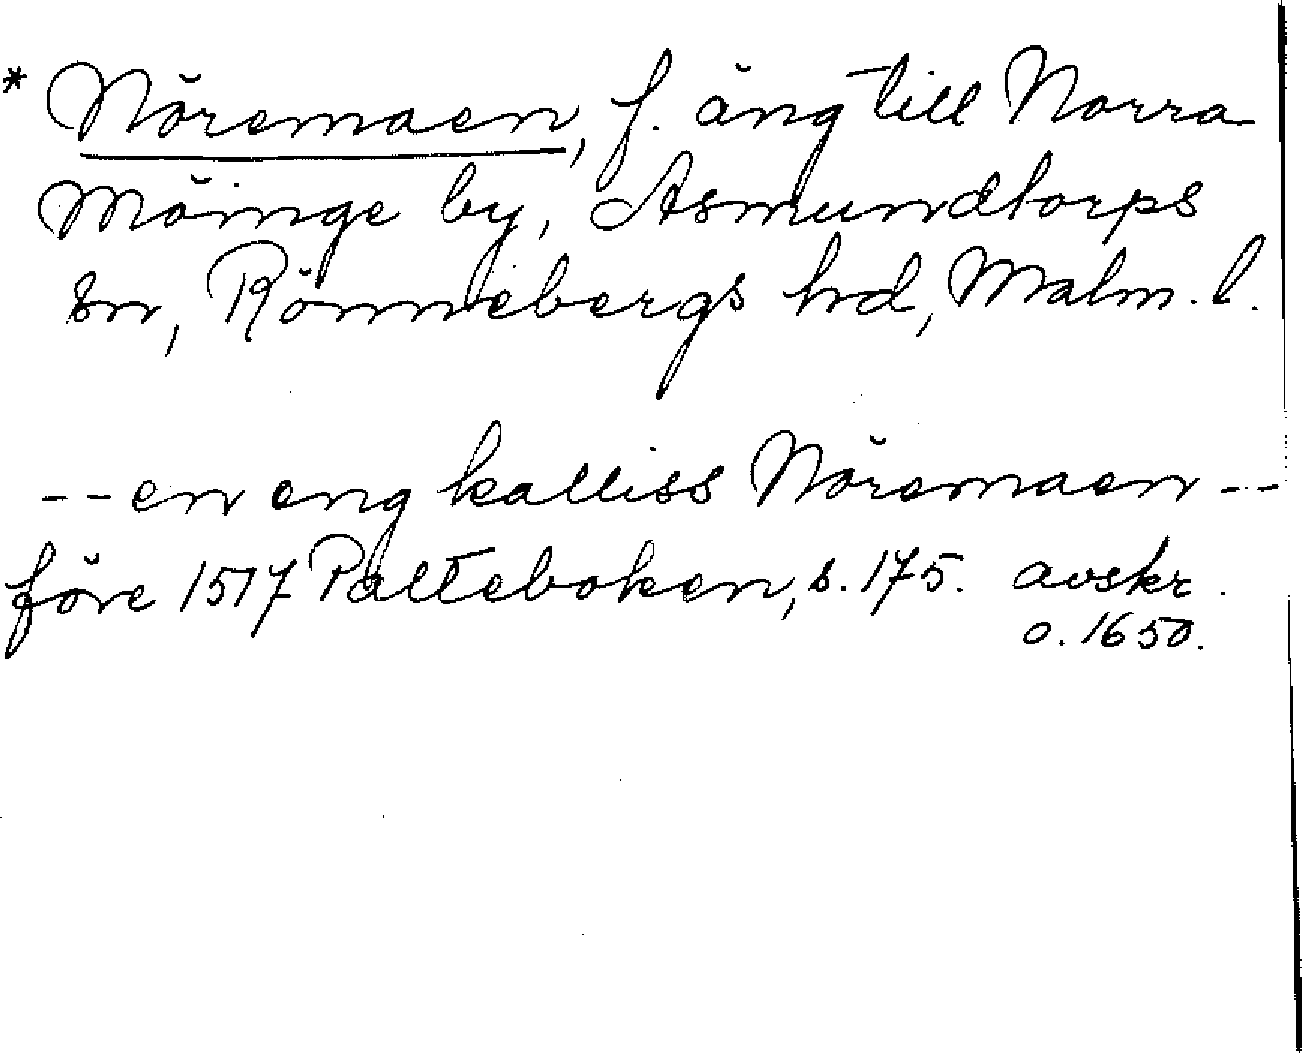 * Nöremaen, f. äng till Norra
Möinge by, Asmundtorps
sn, Rönnebergs hd, Malm. l.
-- en eng kalliss Nöremaen --
före 1517 Palteboken, s. 175. avskr.
o. 1650.